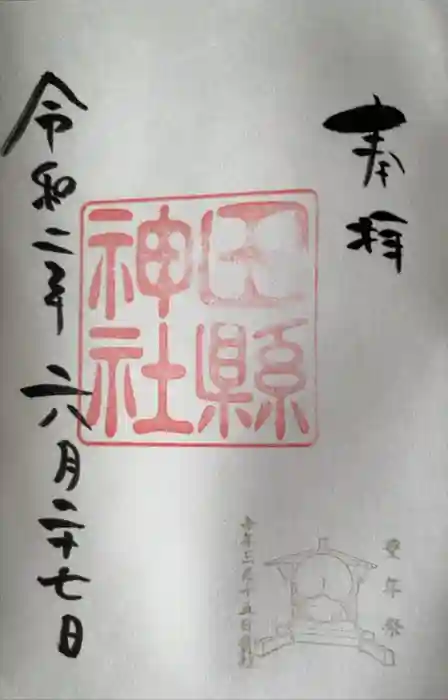 奉拝
田縣
神社
令和二年六月二十七日
豊年祭
毎年三月十五日斎行